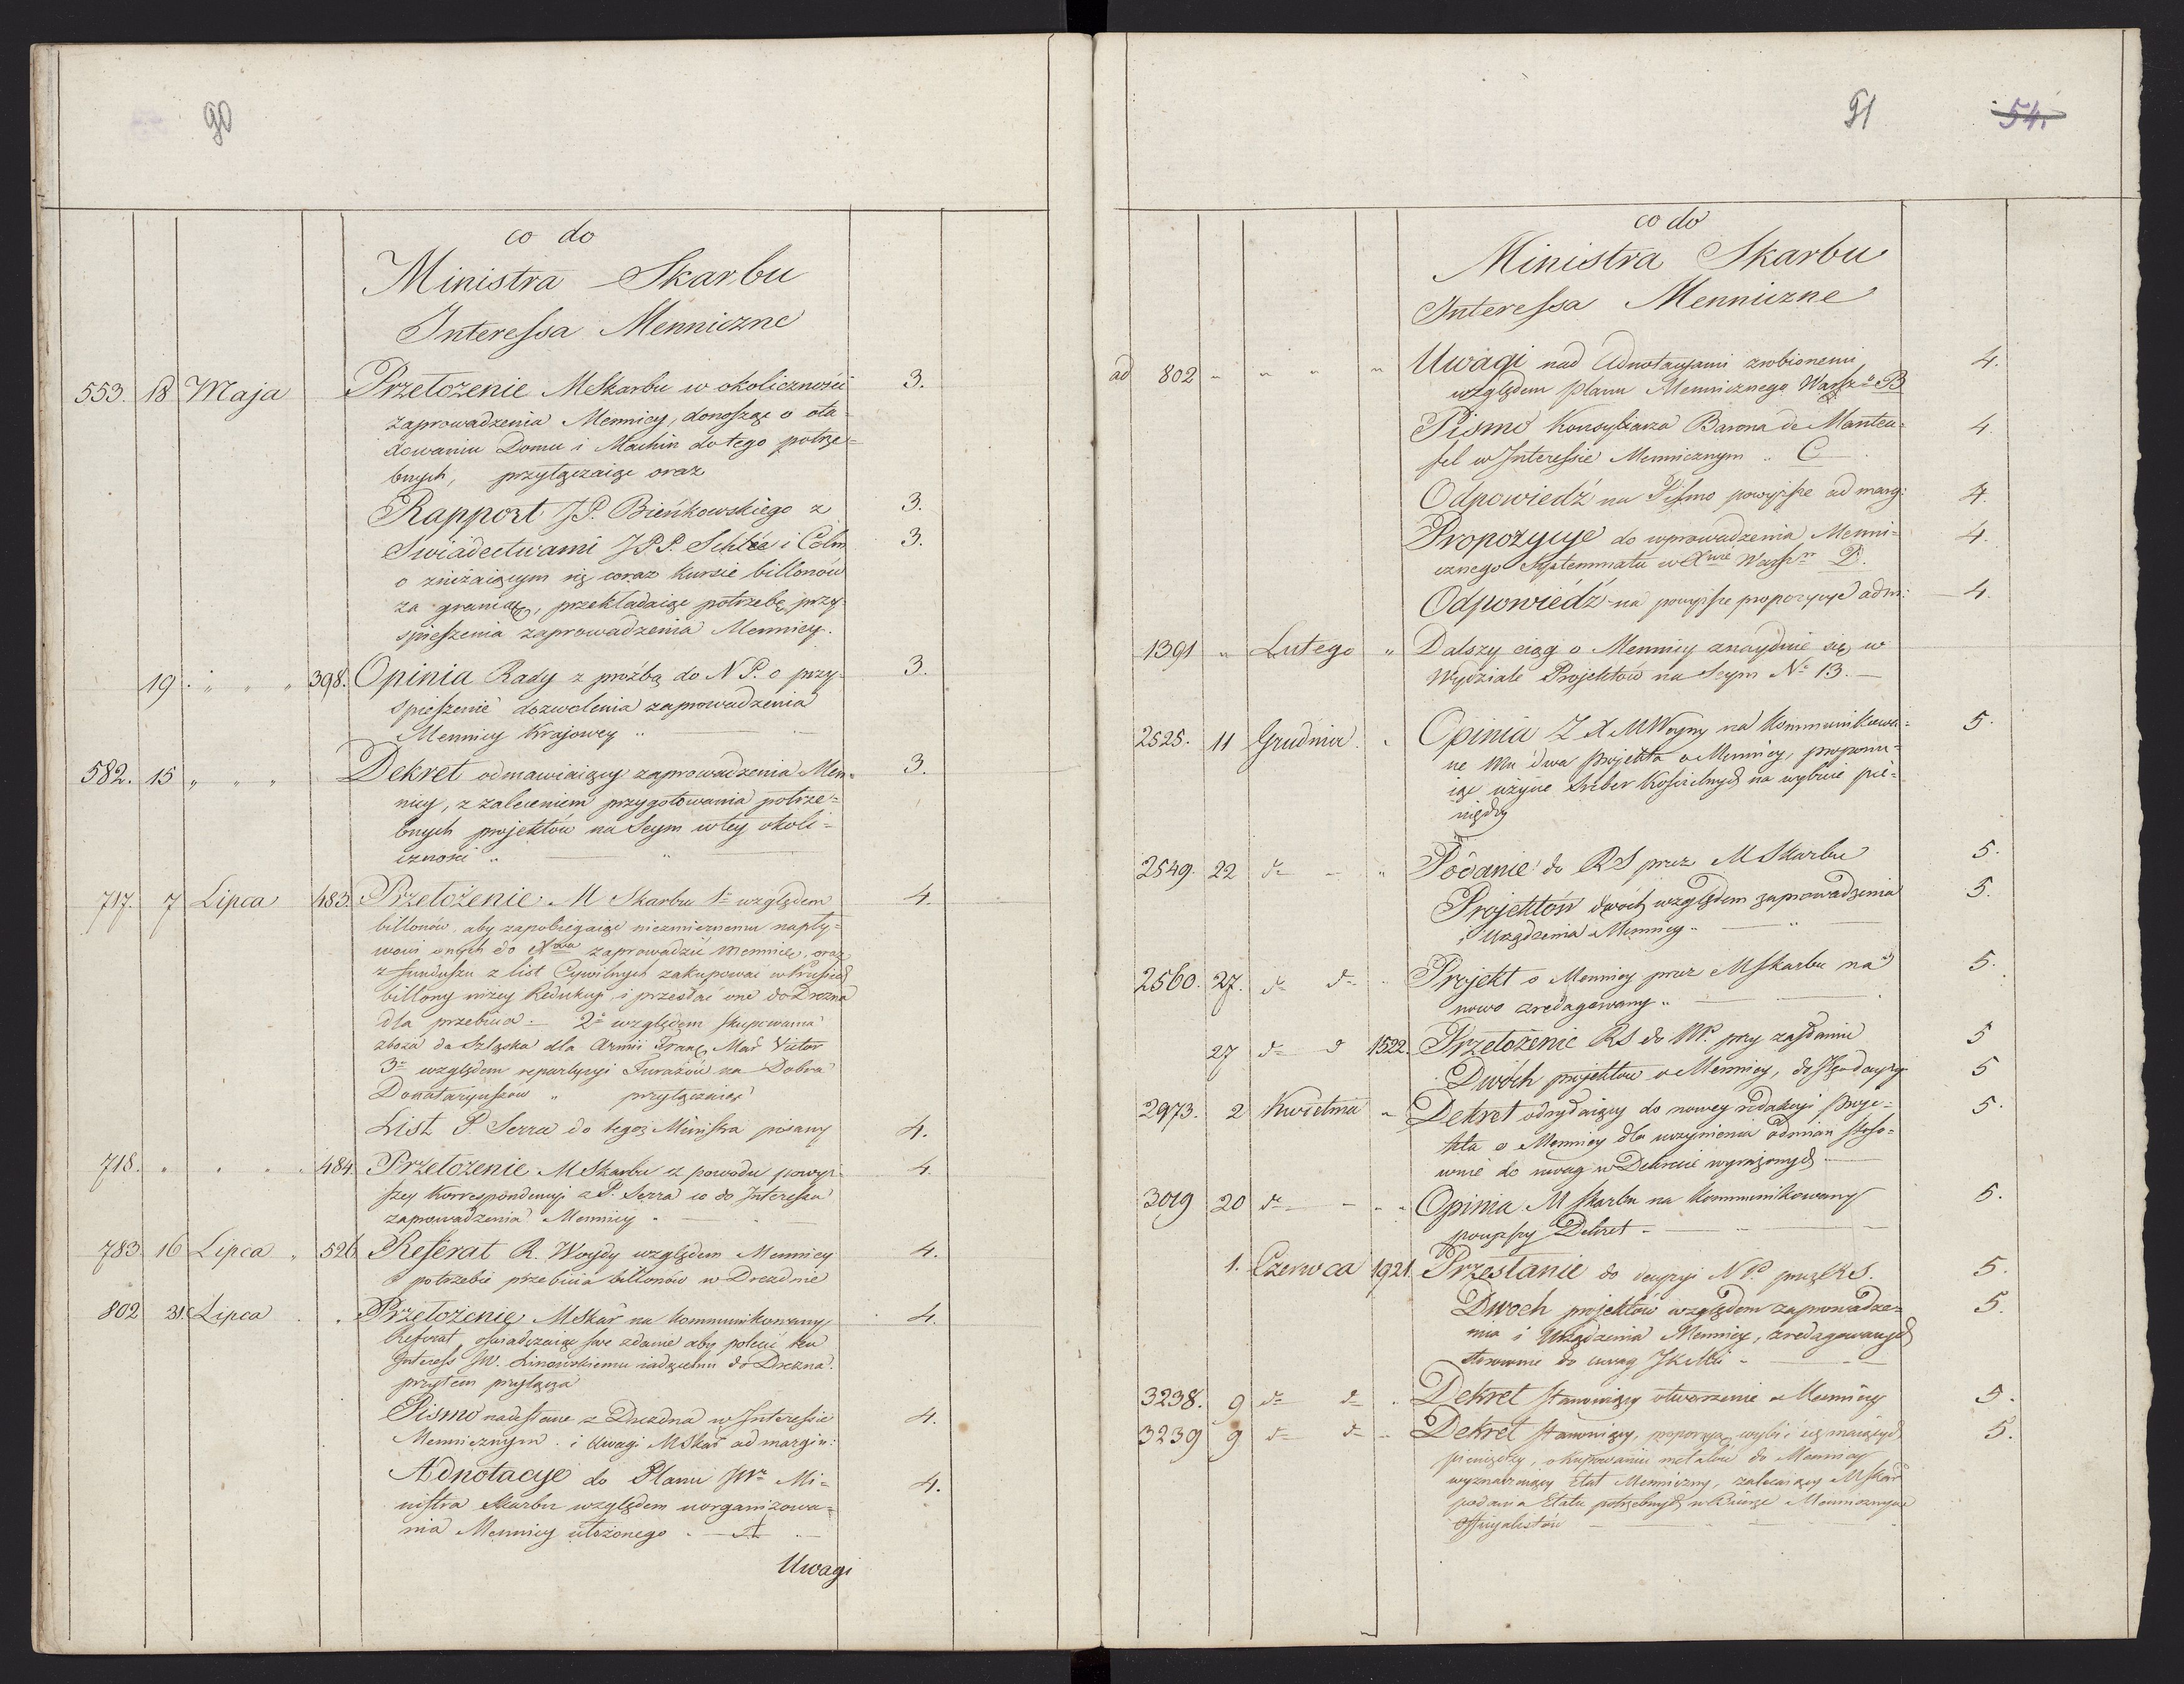 90
co do
Ministra Skarbu
Interessa Menniczne
553. 18 Maja Przełożenie MSkarbu w okoliczności 3.
zaprowadzenia Mennicy, donosząc o ota-
xowaniu Domu i Machin do tego potrze-
bnych, przyłączaiąc oraz
Rapport JP. Bieńkowskiego z 3.
Swiadectwami JPP. Schlee i Cöln 3.
o zniżaiącym się coraz kursie billonów
za granicą, przekładaiąc potrzebę przy-
spieszenia zaprowadzenia Mennicy.
19 " " " 398. Opinia Rady z proźbą do N P. o przy- 3.
spieszenie dozwolenia zaprowadzenia
Mennicy Krajowey "
582. 15 " " " Dekret odmawiaiący zaprowadzenia Men- 3.
nicy, z zaleceniem przygotowania potrze=
bnych projektów na Seym w tey okoli-
czności "
717. 7 Lipca 483. Przełożenie M Skarbu 1o względem 4.
billonów, aby zapobiegaiąc niezmiernemu napły-
wowi onych do Xtwa zaprowadzić mennicę, oraz
z funduszu z list Cywilnych zakupować w Prusiech
billony niżey Redukcyi i przesłać one do Drezna
dla przebicia. 2o względem skupowania
zboża do Szląska dla Armii Franc. Mar Victor
3o względem repartycyi Furażów na Dobra
Donataryuszow " przyłączaiąc
List P. Serra do tegoż Ministra pisany 4.
718. " " " 484 Przełożenie M Skarbu z powodu powyż- 4.
szey Korrespondencyi z P. Serra co do Interessu
zaprowadzenia Mennicy "
783 16 Lipca " 526 Referat R. Woydy względem Mennicy 4.
o potrzebie przebicia billonów w Dreznie
802 31. Lipca Przełożenie MSkar na kommunikowany 4.
Referat, oświadczaiąc swe zdanie aby polecić ten
Interess JW. Linowskiemu iadącemu do Drezna.
przytem przyłącza
Pismo nadesłane z Drezdna w Interessie 4.
Mennicznym. i Uwagi MSkar ad margin:
Adnotacye do Planu JWo Mi- 4.
nistra Skarbu względem uorganizowa=
nia Mennicy ułożonego . A
Uwagi
91 54.
co do
Ministra Skarbu
Interessa Menniczne
ad 802 " " " " Uwagi nad Adnotacyami zrobionemi 4.
względem planu Mennicznego Warszo B
Pismo Konsyliarza Barona de Manteu- 4.
fel w Interessie Mennicznym " C
Odpowiedź na Pismo powyższe ad marg: 4.
Propozycye do wprowadzenia Menni- 4.
cznego Systemmatu w Xwie Warszo D.
Odpowiedź na powyższe propozycye ad m: 4.
1391 " Lutego " Dalszy ciąg o Mennicy znayduie się w
Wydziale Projektów na Seym No 13.
2525. 11 Grudnia " Opinia Z X MWoyny na kommunikowa- 5.
ne Mu dwa projekta o Mennicy, proponu-
iąc użycie Sreber Kościelnych na wybicie pie-
niędzy
2549. 22 do " Podanie do RS przez M Skarbu 5.
Projektów dwóch względem zaprowadzenia 5.
i Urządzenia Mennicy "
2560. 27. do do Projekt o Mennicy przez MSkarbu na 5.
nowo zredagowany "
27 do d 1522. Przełożenie RS do NP. przy zasłaniu 5
Dwóch projektow o Mennicy, do decyzyi 5
2973. 2 Kwietnia " Dekret odsyłaiący do nowey redakcyi proje- 5.
kta o Mennicy dla uczynienia odmian stoso-
wnie do uwag w Dekrecie wyrażonych
3019 20 do " " Opinia M Skarbu na kommunikowany 5.
powyższy Dekret
1. Czerwca 1921. Przesłanie do decyzyi N P. przez RS. 5.
Dwoch projektów względem zaprowadze- 5.
nia i Urządzenia Mennicy, zredagowanych
stosownie do uwag JKMci
3238. 9 do do Dekret stanowiący otworzenie Mennicy 5.
3239 9 do do Dekret stanowiący, proporcyą wybić się maiących 5.
pieniędzy, o kupowaniu metalów do Mennicy
wyznaczaiący Etat Menniczny, zalecaiący MSkar
podania Etatu potrzebnych w Biórze Mennicznym
Officyalistów